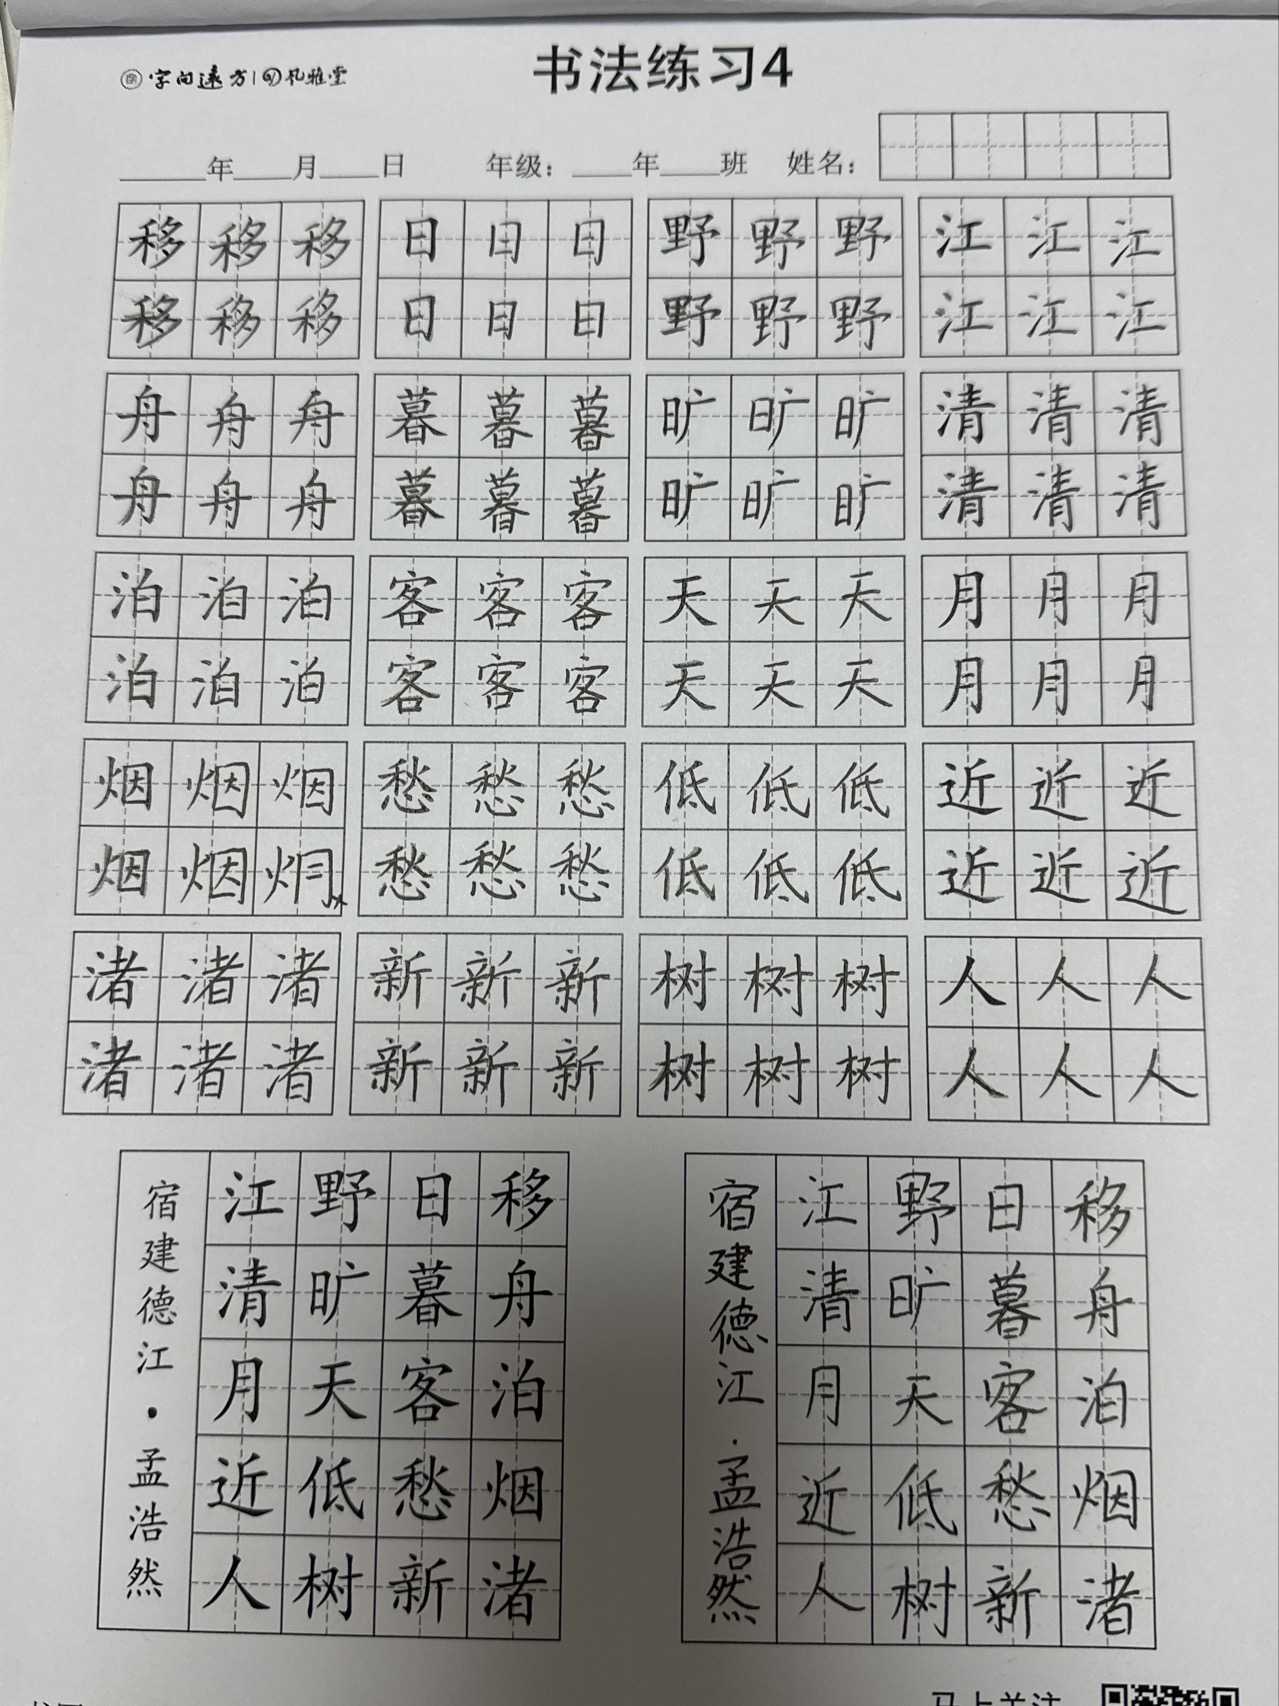 字向远方 凡雅堂
书法练习4
年 月 日 年级： 年 班 姓名：
移移移 日日日 野野野 江江江
移移移 日日日 野野野 江江江
舟舟舟 暮暮暮 旷旷旷 清清清
舟舟舟 暮暮暮 旷旷旷 清清清
泊泊泊 客客客 天天天 月月月
泊泊泊 客客客 天天天 月月月
烟烟烟 愁愁愁 低低低 近近近
烟烟 愁愁愁 低低低 近近近
渚渚渚 新新新 树树树 人人人
渚渚渚 新新新 树树树 人人人
宿建德江·孟浩然
江野日移
清旷暮舟
月天客泊
近低愁烟
人树新渚
宿建德江·孟浩然
江野日移
清旷暮舟
月天客泊
近低愁烟
人树新渚
马上关注